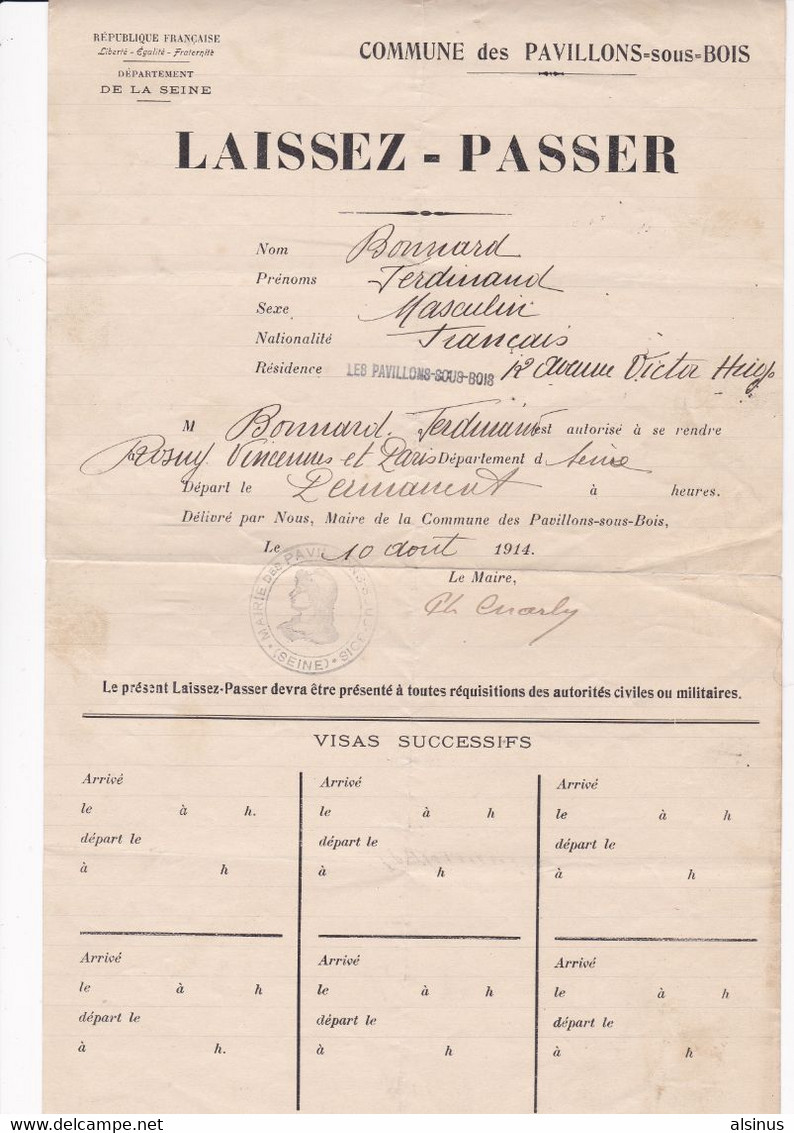 RÉPUBLIQUE FRANÇAISE
Liberté - Égalité - Fraternité
DÉPARTEMENT
DE LA SEINE
COMMUNE des PAVILLONS=sous=BOIS
LAISSEZ - PASSER
Nom Bonnard
Prénoms Ferdinand
Sexe Masculin
Nationalité Français
Résidence LES PAVILLONS-SOUS-BOIS 12 avenue Victor Hugo
M Bonnard Ferdinand est autorisé à se rendre
Rosny Vincennes et Paris Département d Seine
Départ le Permanent à heures.
Délivré par Nous, Maire de la Commune des Pavillons-sous-Bois,
Le 10 août 1914.
Le Maire,
MAIRIE DES PAVILLONS-SOUS-BOIS
(SEINE)
Le présent Laissez-Passer devra être présenté à toutes réquisitions des autorités civiles ou militaires.
VISAS SUCCESSIFS
Arrivé
le à h.
départ le
à h
Arrivé
le à h
départ le
à h
Arrivé
le à h
départ le
à h
Arrivé
le à h
départ le
à h.
Arrivé
le à h
départ le
à h
Arrivé
le à h
départ le
à h
alsinus
delcampe.net